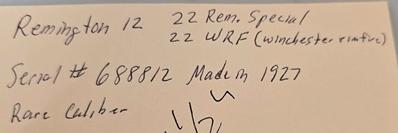 Remington 12 22 Rem. Special
22 WRF (winchester rimfire)
Serial # 688812 Made in 1927
Rare Caliber